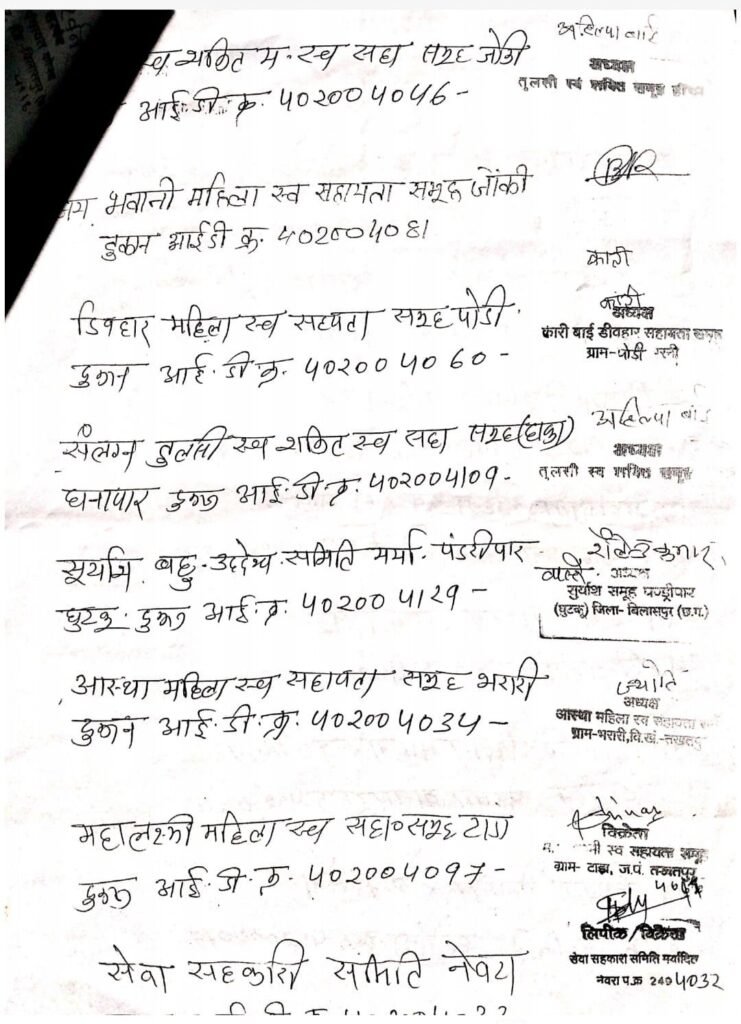 स्व शक्ति म. स्व सहा समूह जोंकी
आई.डी. क्र. 402004046-
अहिल्या बाई
अध्यक्ष
तुलसी एवं शक्ति समूह
भवानी महिला स्व सहायता समूह जोंकी
दुकान आईडी क्र. 402004081
कारी
डिवहार महिला स्व सहायता समूह पोडी
दुकान आई.डी क्र. 402004060-
कारी
अध्यक्ष
कारी बाई डीवहार सहायता समूह
ग्राम-पोडी
संलग्न तुलसी स्व शक्ति स्व सहा समूह
घनापार दुकान आई.डी. क्र. 402004109-
अहिल्या बाई
अध्यक्ष
तुलसी स्व शक्ति समूह
बहु. उद्देश्य. समिति मर्या. पंडरीपार
घुटकू. दुकान आई.डी. क्र. 402004129-
शैलेन्द्र कुमार
वास्ते. अध्यक्ष
सुर्यांश समूह पण्ड्रीपार
(घुटकू) जिला- बिलासपुर (छ.ग.)
आस्था महिला स्व सहायता समूह भरारी
दुकान आई.डी. क्र. 402004034-
ज्योति
अध्यक्ष
आस्था महिला स्व सहायता
ग्राम-भरारी,वि.खं.-तखतपु
महालक्ष्मी महिला स्व सहा० समूह टाडा
दुकान आई.डी. क्र. 402004097-
विक्रेता
स्व सहायता समूह
ग्राम- टाडा, ज.पं. तखतपुर
लिपीक/विक्रेता
सेवा सहकारी समिति मर्यादित
नेवरा प.क्र 249 4032
सेवा सहकारी समिति नेवरा